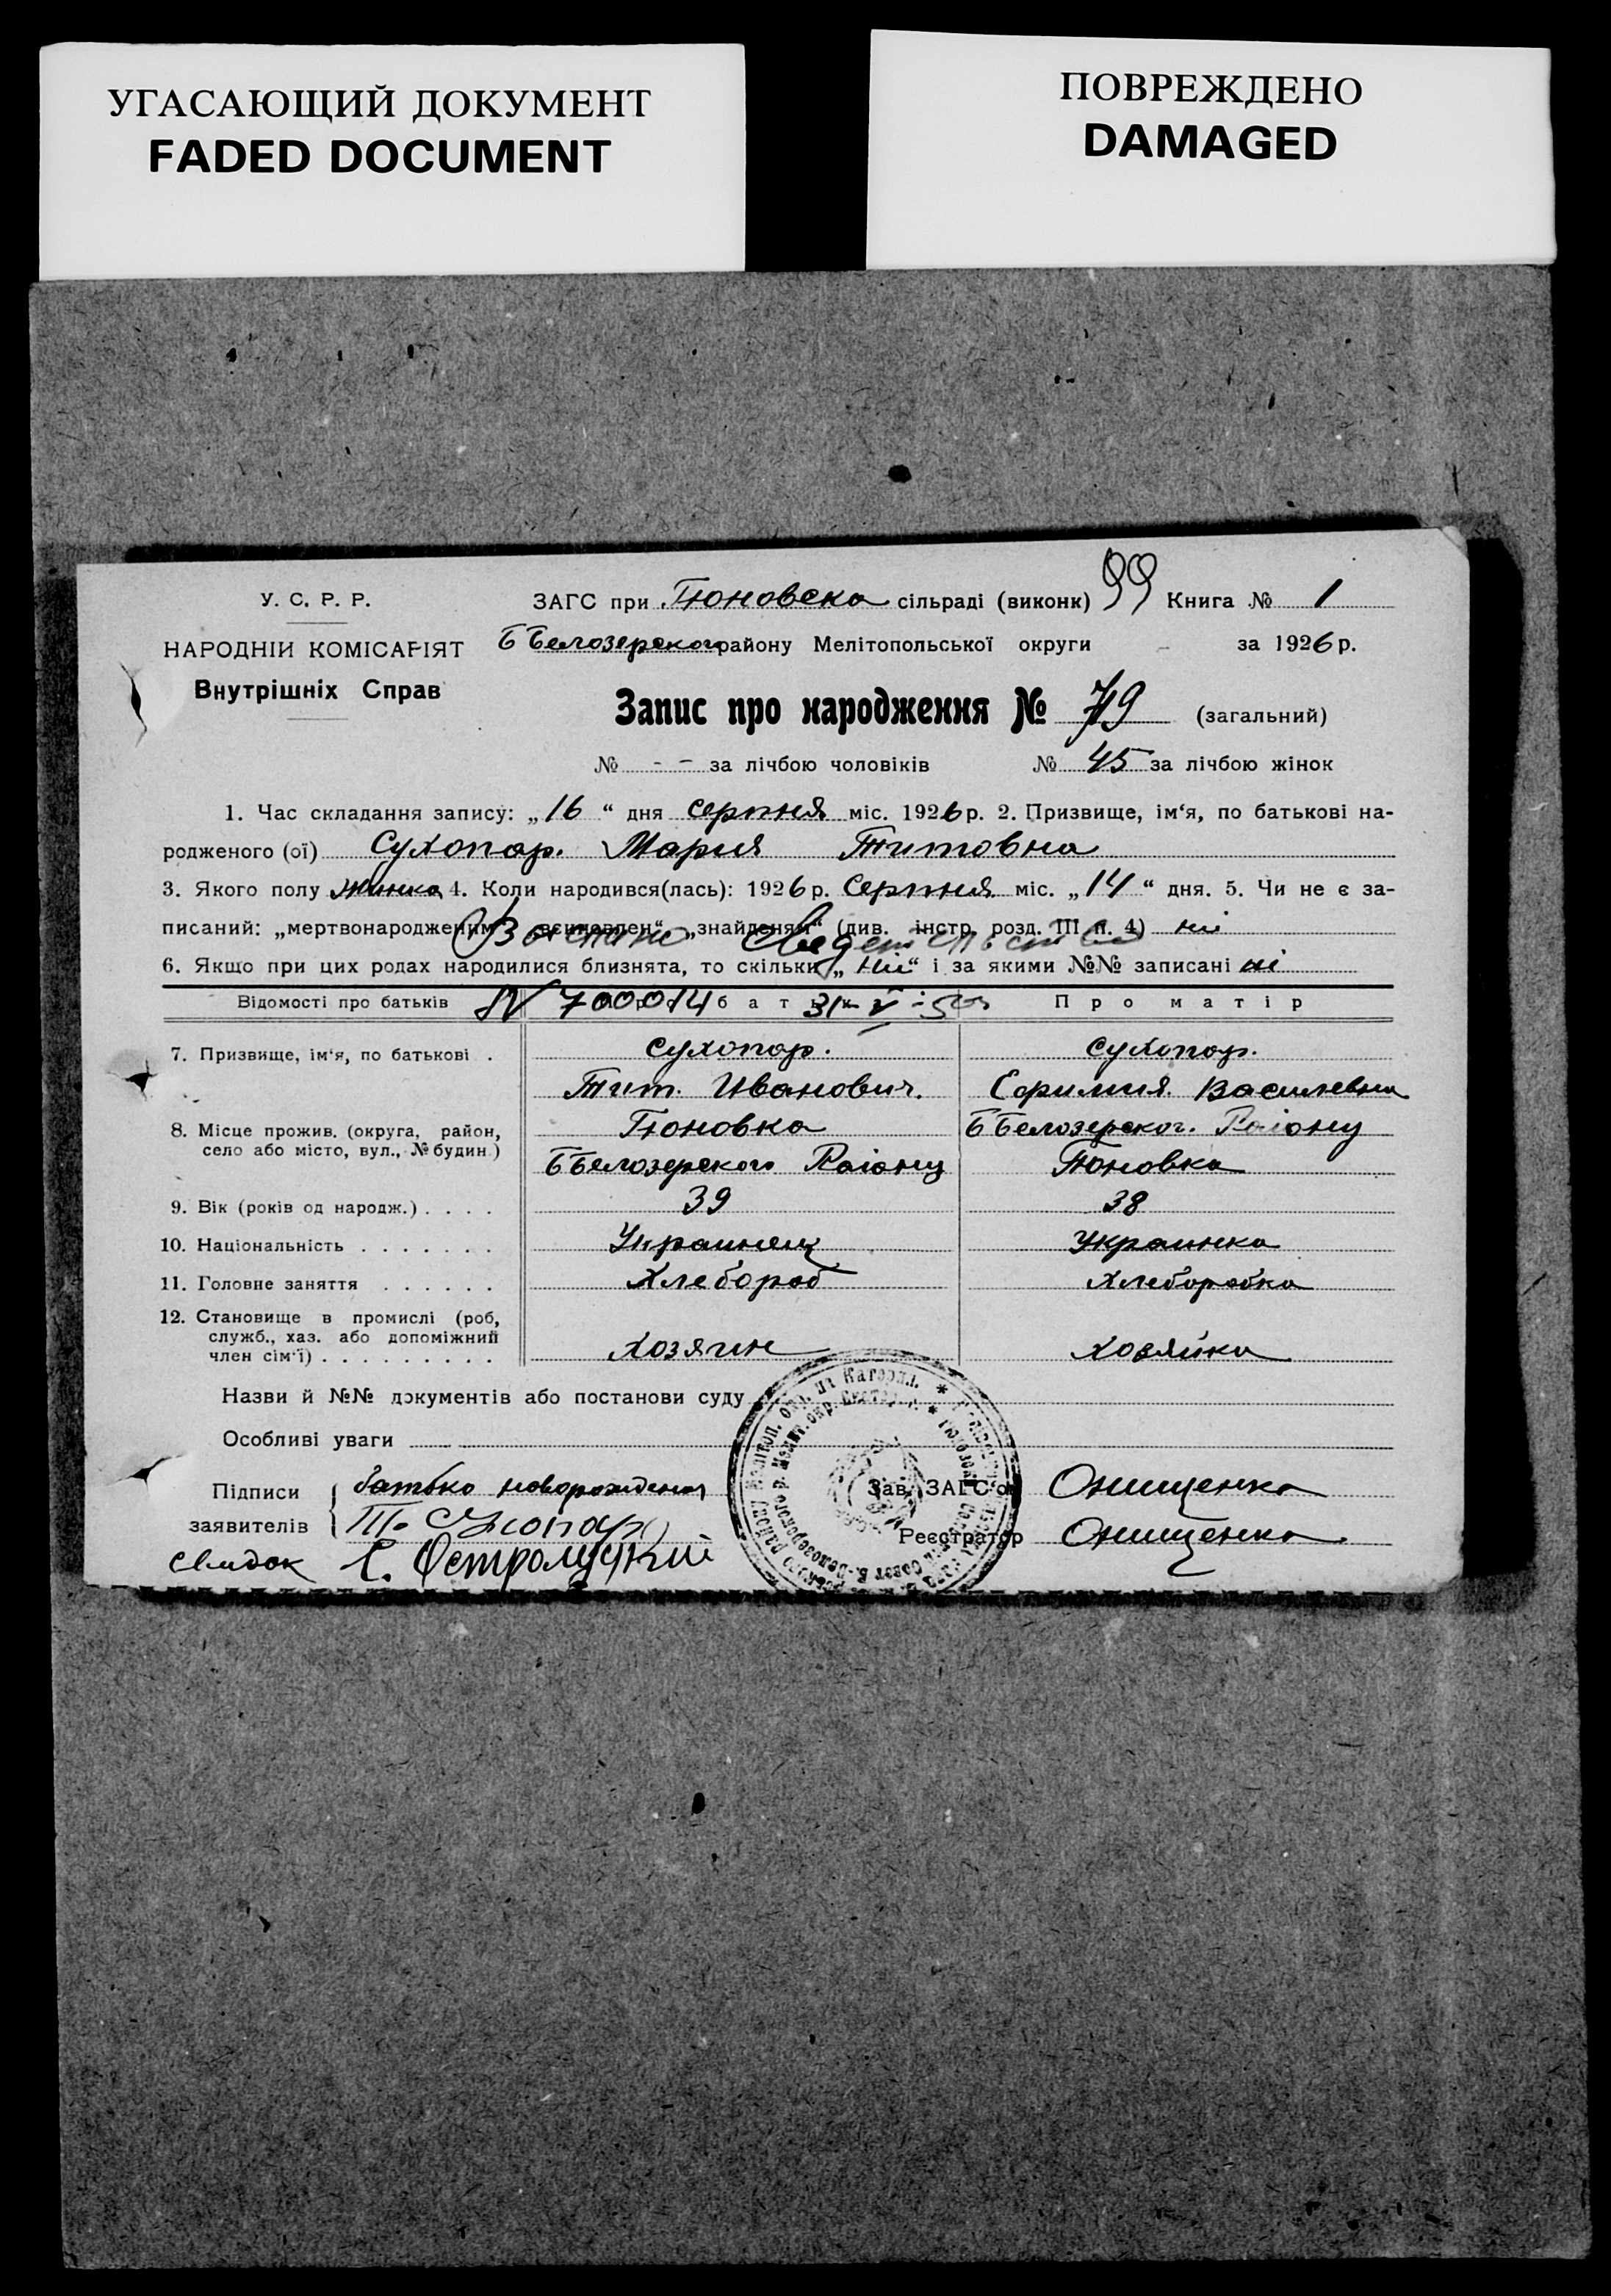 УГАСАЮЩИЙ ДОКУМЕНТ
FADED DOCUMENT
ПОВРЕЖДЕНО
DAMAGED
У. С. Р. Р.
НАРОДНІЙ КОМІСАРІЯТ
Внутрішніх Справ
ЗАГС при Гюновска сільраді (виконк) 99 Книга № 1
Б Белозерского району Мелітопольської округи за 1926 р.
Запис про народження № 79 (загальний)
№ - - за лічбою чоловіків № 45 за лічбою жінок
1. Час складання запису: „16“ дня серпня міс. 1926 р. 2. Призвище, ім‘я, по батькові на-
родженого (ої) Сухопар. Мария Титовна
3. Якого полу жинка 4. Коли народився(лась): 1926 р. Серпня міс. „14“ дня. 5. Чи не є за-
писаний: „мертвонародженим“ „всиновлен“ „знайденям“ (див. інстр. розд. III п. 4) ни
свидетельство
6. Якщо при цих родах народилися близнята, то скільки „ни“ і за якими №№ записані ні
Відомості про батьків батьк Про матір
№ 700014 31-V-50
7. Призвище, ім‘я, по батькові . Сухопар. Сухопар.
Тит. Иванович. Ефимия Васильевна
8. Місце прожив. (округа, район, Гюновка ББелозерског. Раіону
село або місто, вул., № будин.) ББелозерского Раіону Гюновка
9. Вік (років од народж.) . . . . 39 38
10. Національність . . . . . . . Украинец Украинка
11. Головне заняття . . . . . . Хлебороб Хлеборобка
12. Становище в промислі (роб,
служб., хаз. або допоміжний
член сім‘ї) . . . . . . . . . Хозяин хозяйка
Назви й №№ документів або постанови суду
Особливі уваги
Підписи батько новорожденой Зав. ЗАГС‘ом Онищенко
заявителів Т. Сухопар Реєстратор Онищенко
Свидок Е. Остромуцкий